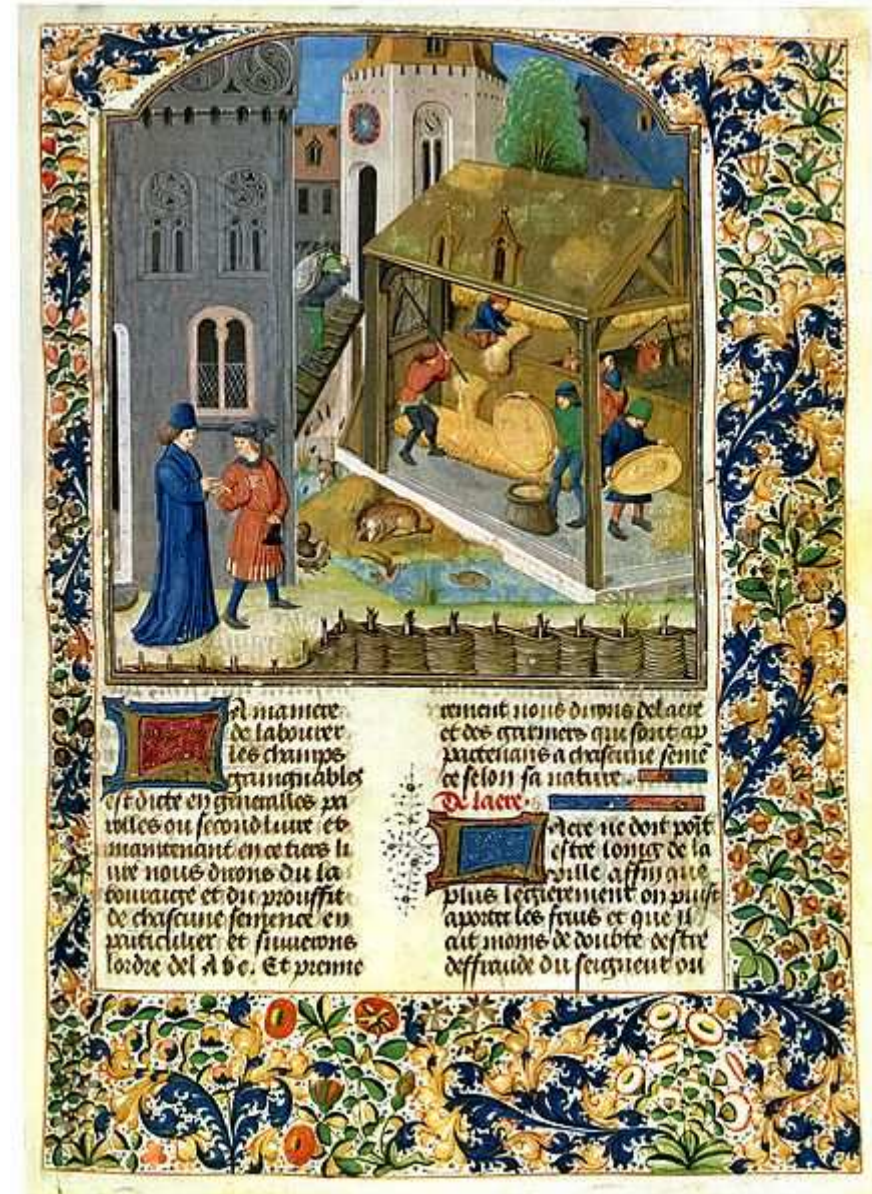 A maniere
de labourer
les champs
gaingnables
est dicte en generalles pa
rolles ou second livre et
maintenant en ce tiers li
vre nous dirons du la
bouraige et du prouffit
de chascune semence en
particulier et suivrons
lordre del A b c. Et premie
rement nous dirons de laere
et des greniers qui sont ap
partenans a chascune semē
ce selon sa nature
De laere.
Aere ne doit poīt
estre loing de la
ville affin que
plus legierement on puist
aporter les fruis et que il
ait moins de doubte destre
deffraude du seigneur ou